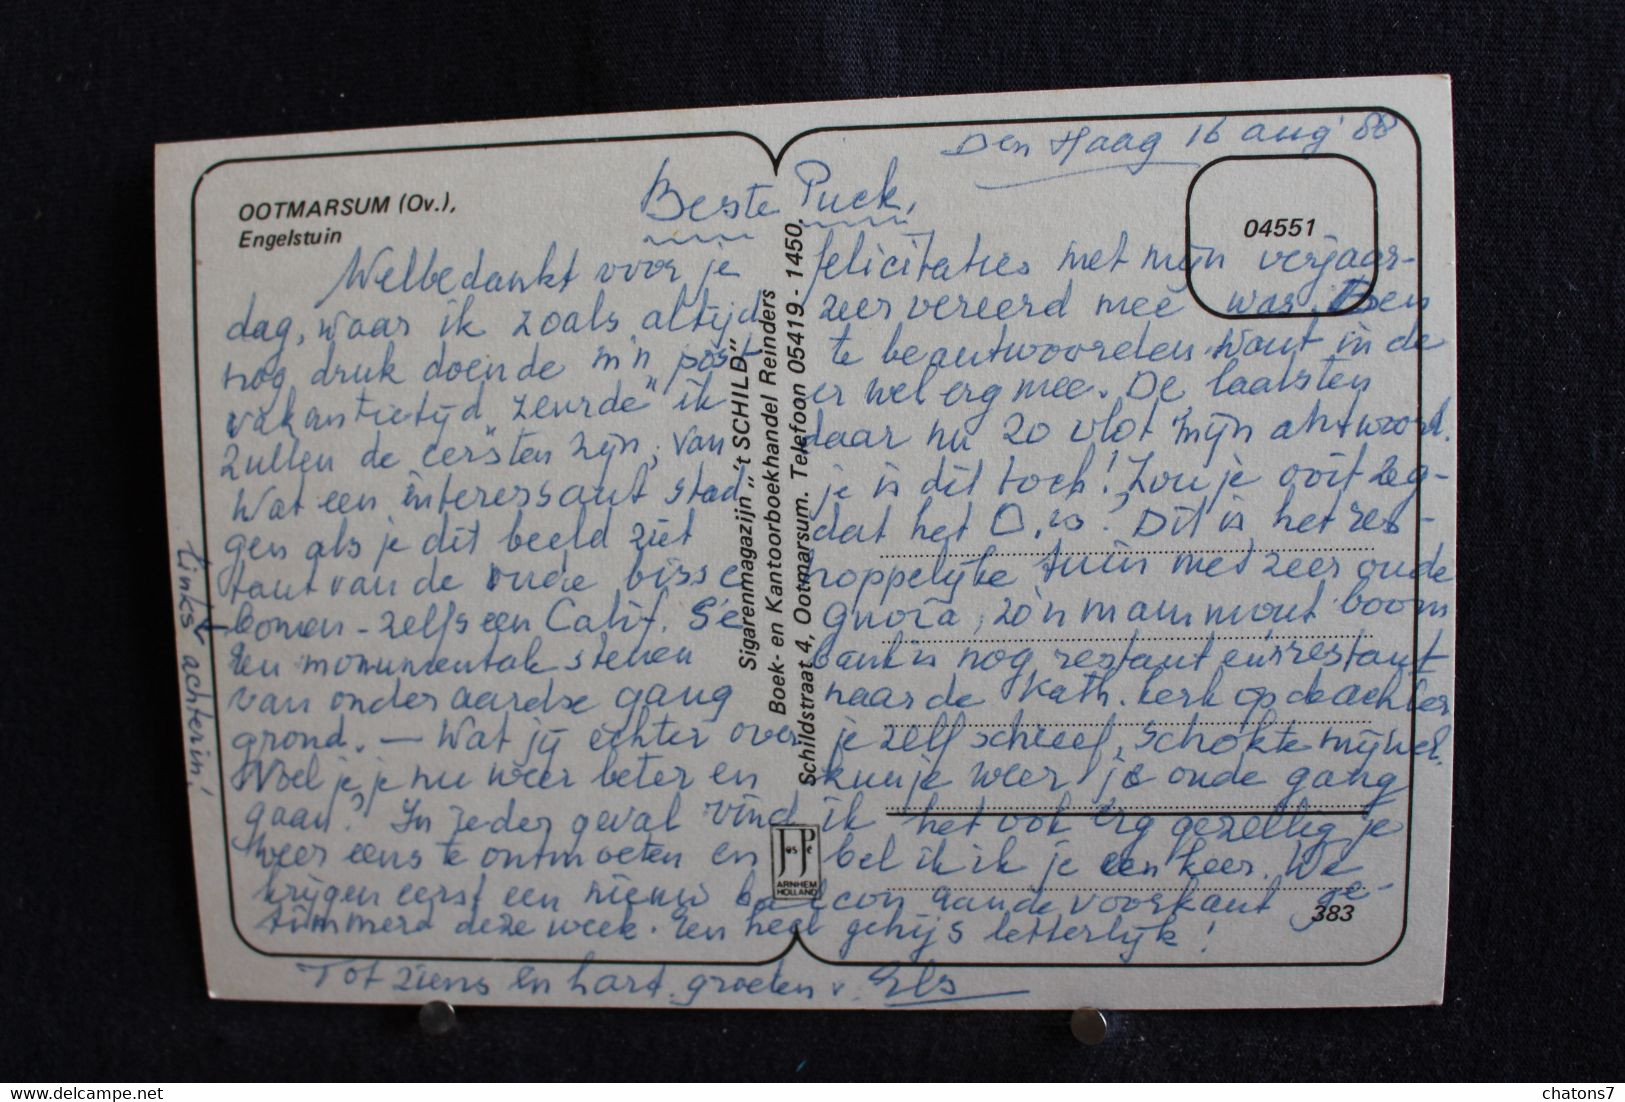 Den Haag 16 aug '88
Beste Puck,
OOTMARSUM (Ov.),
Engelstuin
04551
Welbedankt voor je felicitaties met mijn verjaar-
dag, waar ik zoals altijd zeer vereerd mee was. Ben
nog druk doende m'n post te beantwoorden. Want in de
vakantietijd „zeurde" ik er wel erg mee. De laatsten
zullen de eersten zijn, vandaar nu zo vlot mijn antwoord.
Wat een interessant stadje is dit toch! Zou je ooit zeg-
gen als je dit beeld ziet dat het O. is? Dit is het res-
tant van de oude bisschoppelijke tuin met zeer oude
bomen - zelfs een Calif. Se quoia, zo'n mammout boom
Een monumentale stenen bank is nog restant en restant
van onderaardse gang naar de Kath. kerk op de achter
grond. — Wat jij echter over je zelf schreef, schokte mij wel.
Voel je je nu weer beter en kun je weer je oude gang
gaan? In ieder geval vind ik het ook erg gezellig je
weer eens te ontmoeten en bel ik ik je een keer. We
krijgen eerst een nieuw balcon aan de voorkant ge-
timmerd deze week. Een heel gehijs letterlijk!
Tot ziens en hart. groeten v. Els
links achterin!
Sigarenmagazijn „'t SCHILD"
Boek- en Kantoorboekhandel Reinders
Schildstraat 4, Ootmarsum. Telefoon 05419 - 1450.
JosPé
ARNHEM
HOLLAND
383
delcampe.net
chatons7